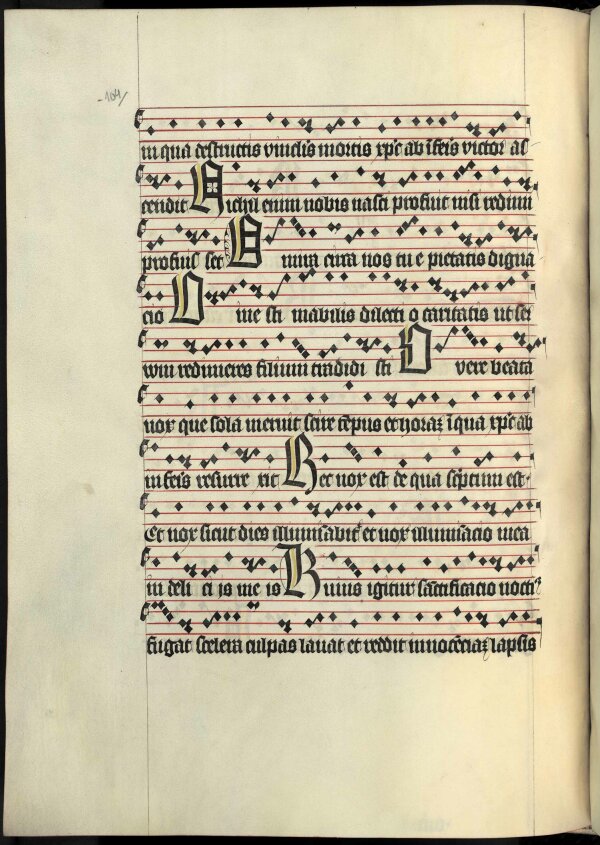 104
in qua destructis vinclis mortis xpc ab īfeis victor as
cendit Nichil enim nobis nasci profuit nisi redimi
profuis set O mira circa nos tu e pietatis digna
cio O ine sti mabilis dilecti o caritatis ut ser
vum redimeres filium tradidi sti O vere beata
nox que sola meruit scire tēpus et horaʒ ī qua xpc ab
in feis resurre xit Hec nox est de qua scͥptum est
Et nox sicut dies illumīabitͬ et nox illumīacio mea
in deli ci js me is Huius igitur sāctificacio nocti⁹
fugat scelera culpas lavat et reddit innocēciaʒ lapsis